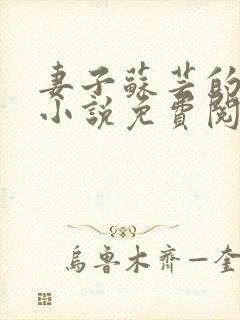 妻子蘇芸的
小說免費閱
烏魯木齊—奎